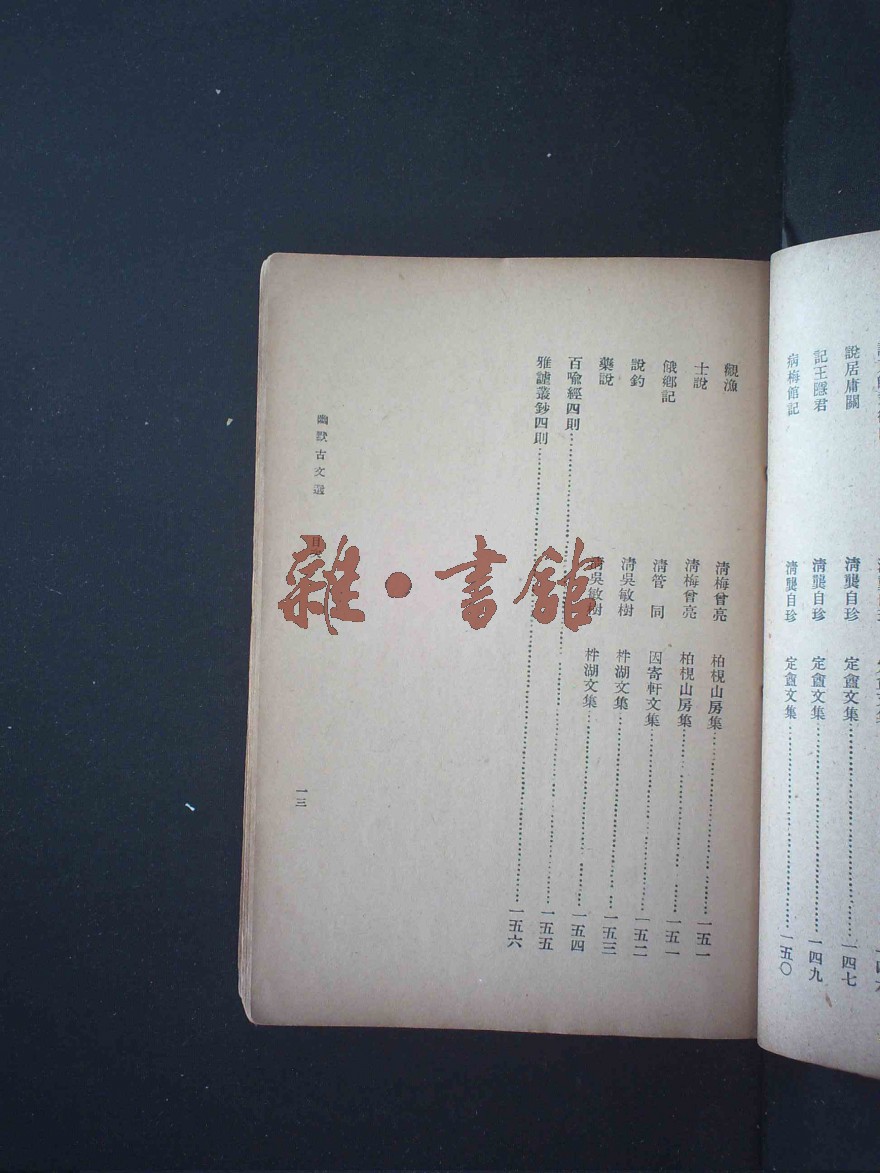 說居庸關 清龔自珍 定盦文集 一四七
記王隱君 清龔自珍 定盦文集 一四九
病梅館記 清龔自珍 定盦文集 一五〇
觀漁 清梅曾亮 柏梘山房集 一五一
士說 清梅曾亮 柏梘山房集 一五一
餓鄉記 清管同 因寄軒文集 一五二
說釣 清吳敏樹 柈湖文集 一五三
藥說 清吳敏樹 柈湖文集 一五四
百喻經四則 一五五
雅謔叢鈔四則 一五六
幽默古文選 目
一三
雜·書館